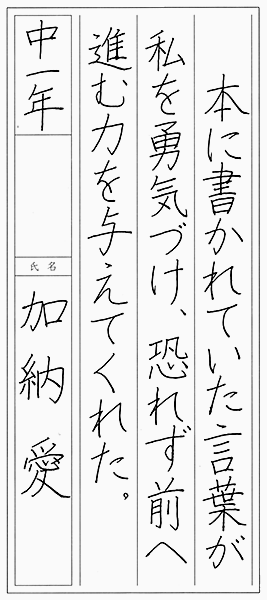 本に書かれていた言葉が
私を勇気づけ、恐れず前へ
進む力を与えてくれた。
中一年
氏名
加納 愛